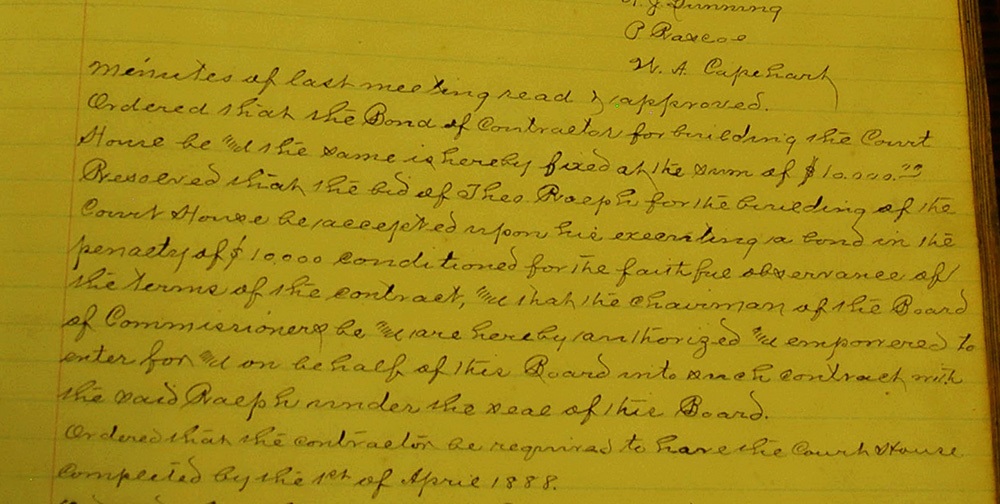 Dunning
P. Rascoe
W. A. Capehart
minutes of last meeting read & approved.
Ordered that the Bond of Contractor for building the Court
House be and the same is hereby fixed at the sum of $10.000.00
Resolved that the bid of Theo. Ralph for the building of the
Court House be accepted upon his executing a bond in the
penalty of $10,000 conditioned for the faithful observance of
the terms of the contract, and that the chairman of the Board
of Commissioners be and are hereby authorized and empowered to
enter for and on behalf of this Board into such contract with
the said Ralph under the seal of this Board.
Ordered that the contractor be required to have the Court House
completed by the 1st of April 1888.